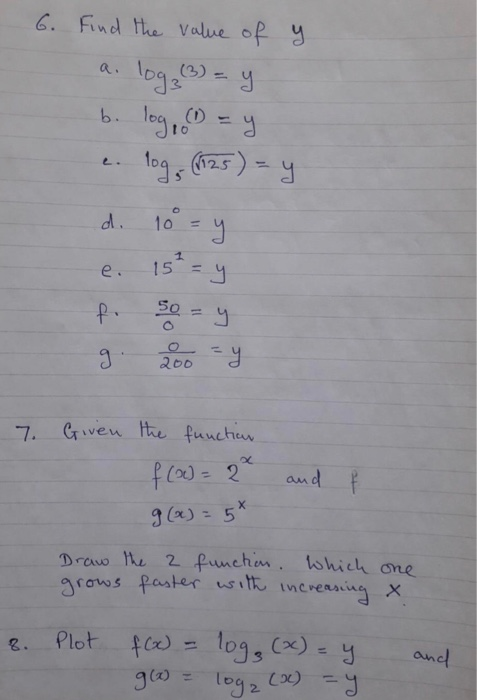 6. Find the value of y
a. log₃(3) = y
b. log₁₀(1) = y
c. log₅(√125) = y
d. 10⁰ = y
e. 15¹ = y
f. 50/0 = y
g. 0/200 = y
7. Given the function
f(x) = 2ˣ and f
g(x) = 5ˣ
Draw the 2 function. Which one
grows faster with increasing x.
8. Plot f(x) = log₃(x) = y and
g(x) = log₂(x) = y